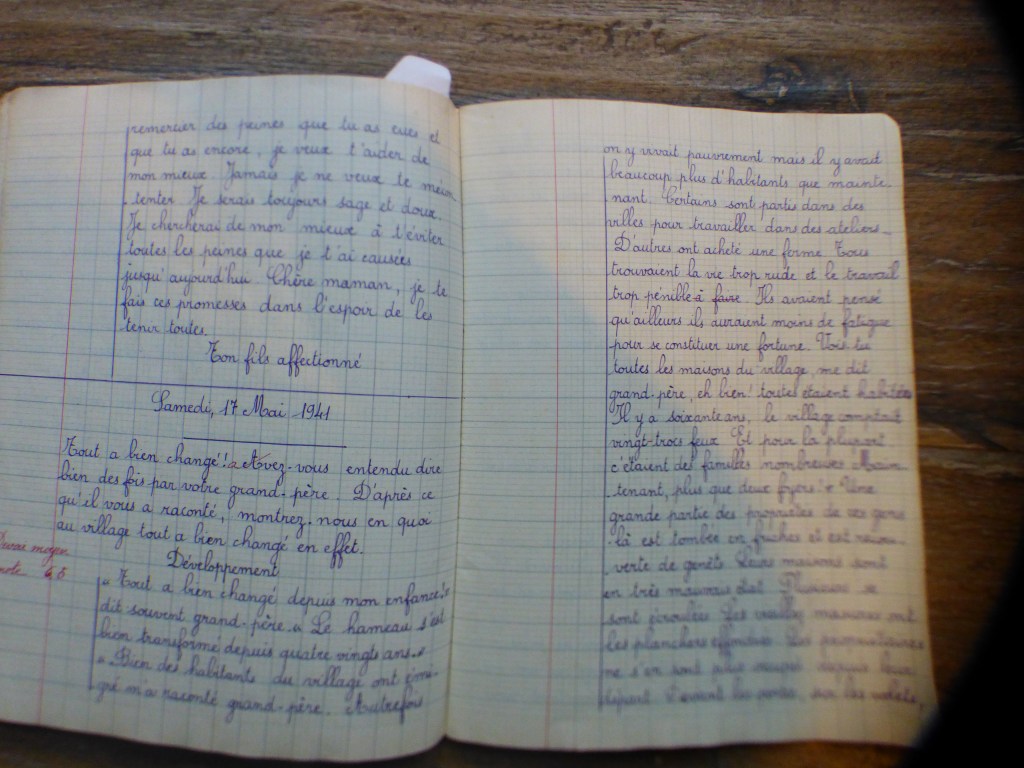 remercier des peines que tu as eues et
que tu as encore, je veux t'aider de
mon mieux. Jamais je ne veux te mécon
tenter. Je serais toujours sage et doux.
Je chercherai de mon mieux à t'éviter
toutes les peines que je t'ai causées
jusqu'aujourd'hui. Chère maman, je te
fais ces promesses dans l'espoir de les
tenir toutes.
Ton fils affectionné
Samedi, 17 Mai 1941
Tout a bien changé! Avez-vous entendu dire
bien des fois par votre grand-père. D'après ce
qu'il vous a raconté, montrez-nous en quoi
au village tout a bien changé en effet.
Développement
moyen
note
" Tout a bien changé depuis mon enfance!"
dit souvent grand-père. " Le hameau s'est
bien transformé depuis quatre vingts ans."
" Bien des habitants du village ont émi-
gré m'a raconté grand-père. Autrefois
on y vivait pauvrement mais il y avait
beaucoup plus d'habitants que mainte-
nant. Certains sont partis dans des
villes pour travailler dans des ateliers.
D'autres ont acheté une ferme. Tous
trouvaient la vie trop rude et le travail
trop pénible à faire. Ils avaient pensé
qu'ailleurs ils auraient moins de fatigue
pour se constituer une fortune. Vois-tu
toutes les maisons du village, me dit
grand-père, eh bien! toutes étaient habitées
Il y a soixante ans, le village comptait
vingt-trois feux. Et pour la plupart
c'étaient des familles nombreuses. Main
tenant, plus que deux foyers! " Une
grande partie des propriétés de ces gens
là est tombée en friches et est recou-
verte de genêts. Leurs maisons sont
en très mauvais état. Plusieurs se
sont écroulées. Les vieilles maisons ont
les planchers effondrés. Les propriétaires
ne s'en sont plus occupé depuis leur
départ. les portes, les volets,